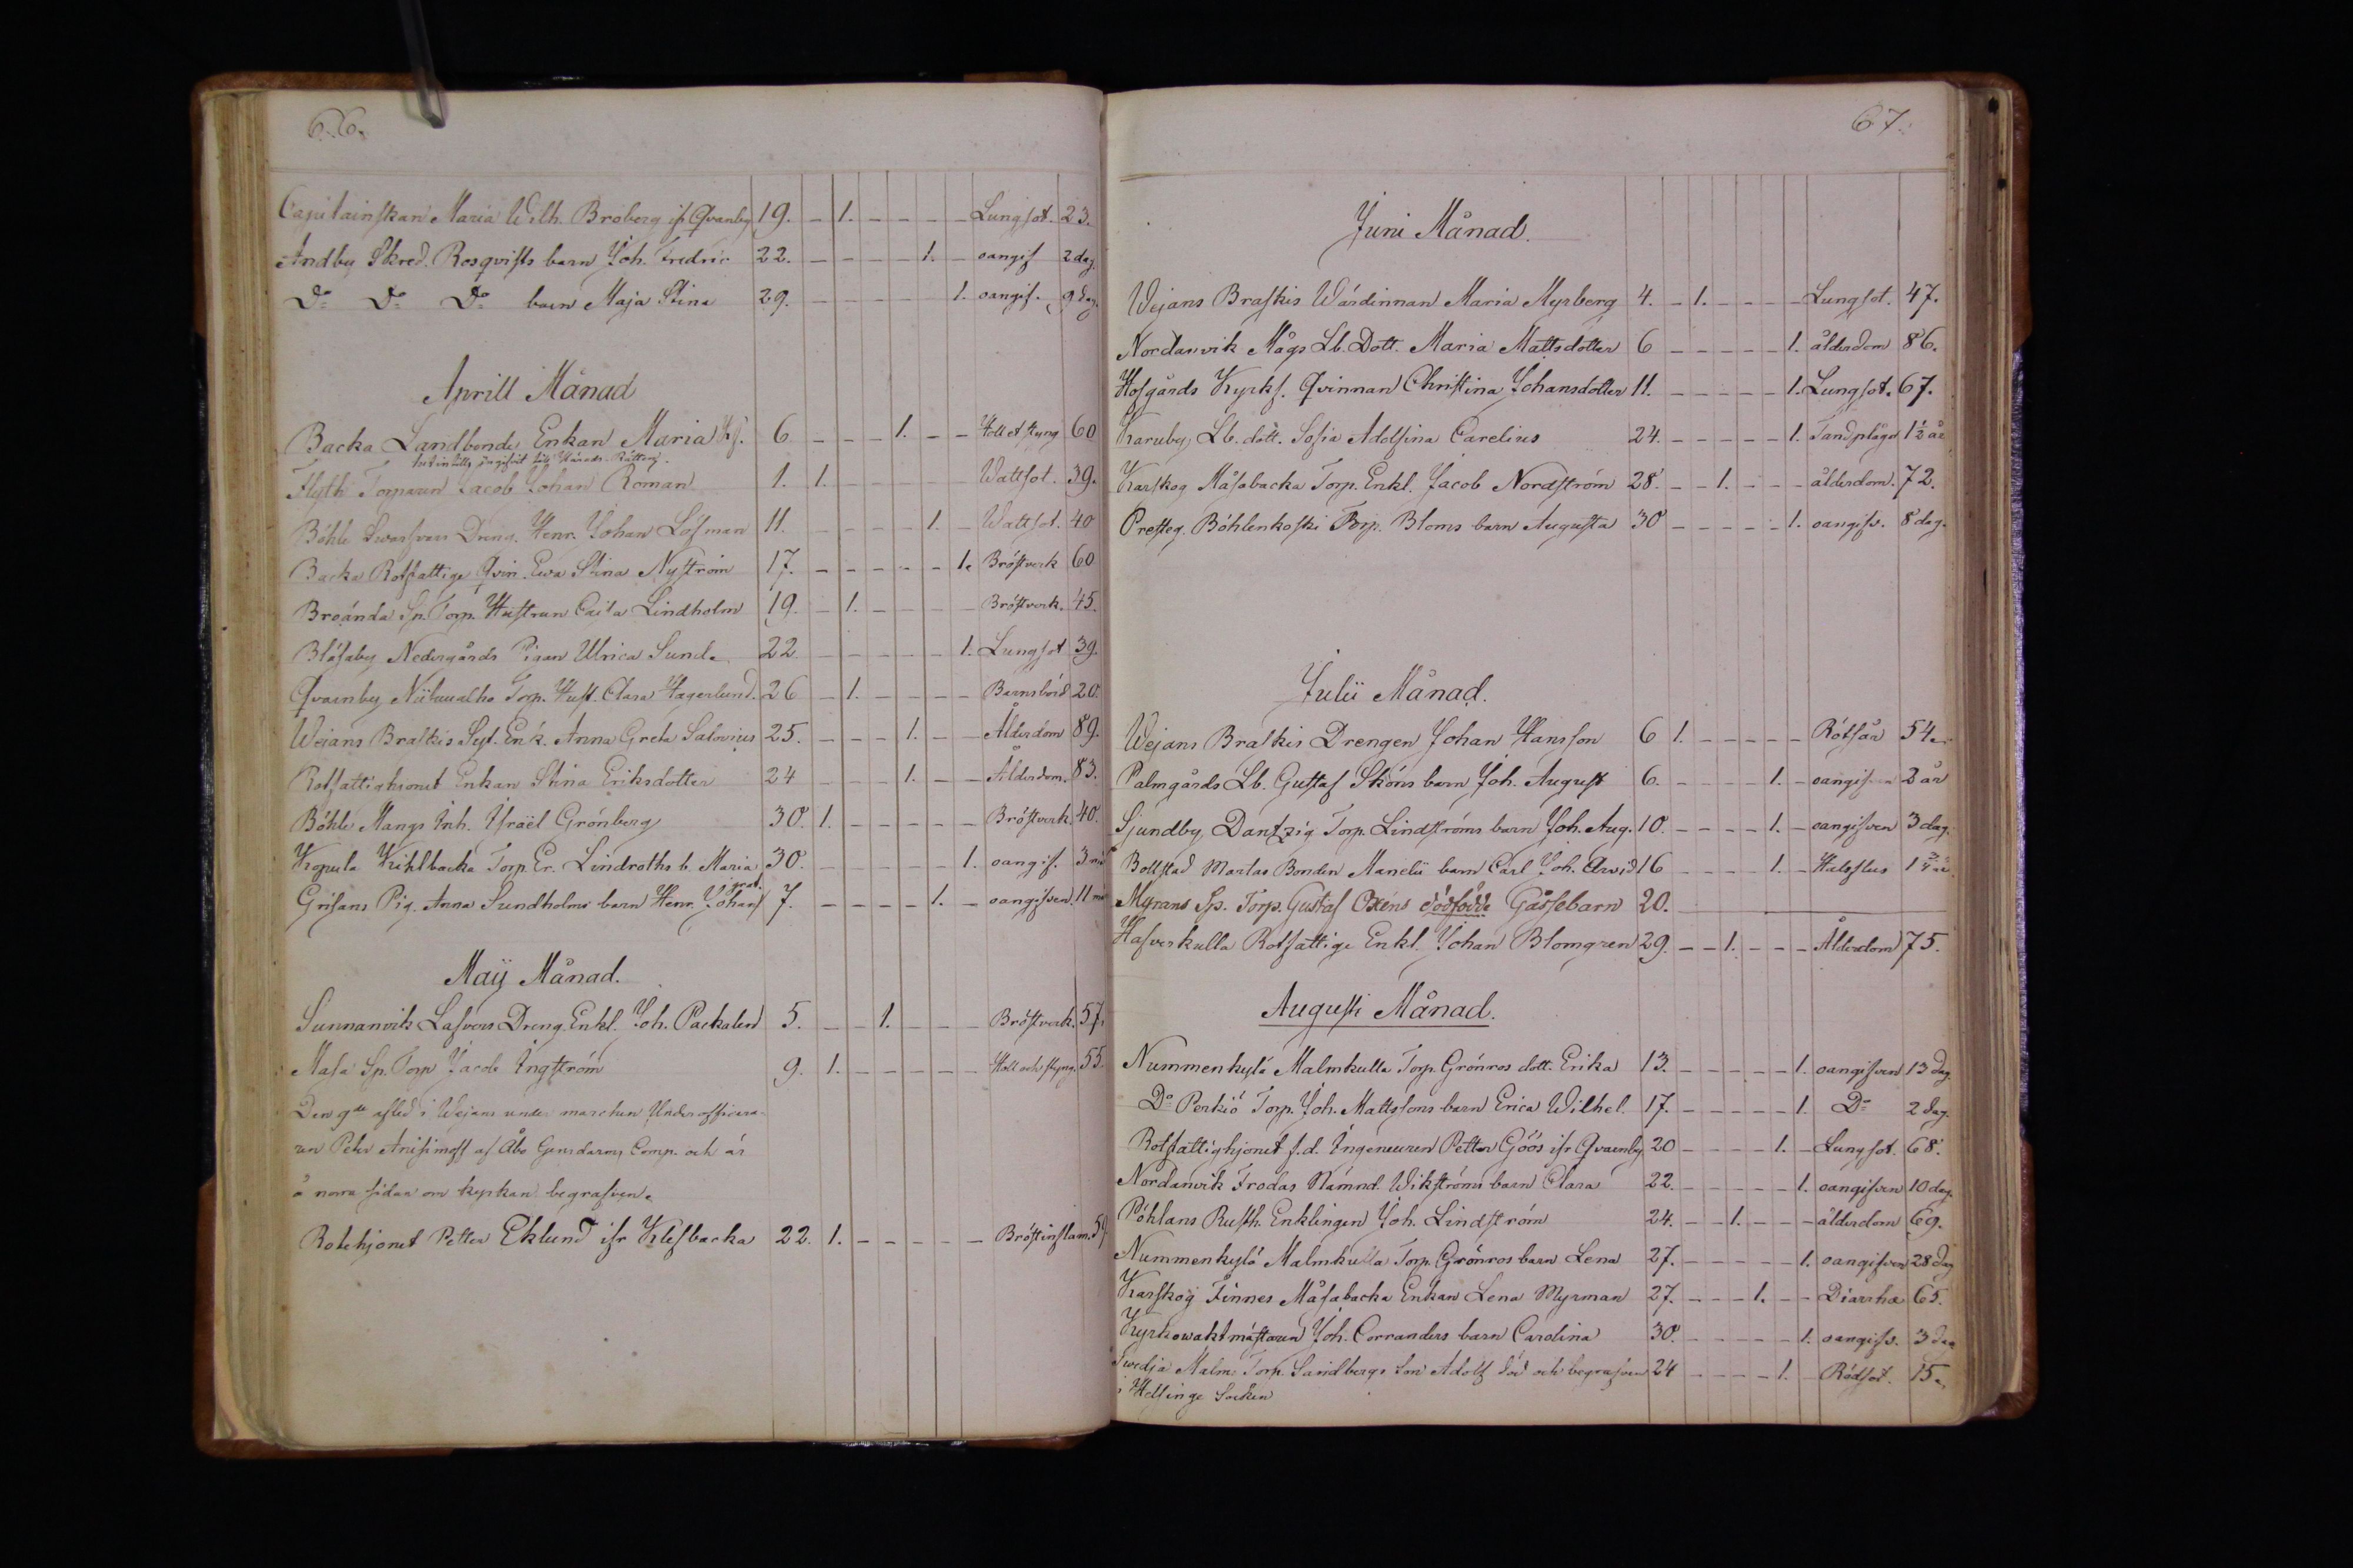 66.
Capitainskan Maria Wilh. Broberg ifr Qvarnby 19. – 1. – – – – Lungsot. 23.
Andby Skred. Rosqvists barn Joh. Fredric 22. – – – – 1. – oangif 2 dag.
Do Do Do barn Maja Stina 29. – – – – – 1. oangif. 9 dag.
Aprill Månad
Backa Landbonde Enkan Maria 6 – – – 1. – – Håll et styng 60
Flyth Torparen Jacob Johan Roman 1. 1. – – – – – Wattsot. 39.
Böhle Dreng. Henr. Johan Löfman 11. – – – – 1. – Wattsot. 40
Backa Rotfattige Qvin. Ewa Stina Nyström 17. – – – – – 1. Bröstverk 60
Broända Sp. Torp. Hustrun Caisa Lindholm 19. – 1. – – – – Bröstverk. 45.
Blåsaby Nedergårds Pigan Ulrica Sund. 22 – – – – – 1. Lungsot 39.
Qvarnby Torp. Hust. Clara Hagerlund. 26 – 1. – – – – Barnsbörd 20.
Wejans Braskis Syt. Enk. Anna Greta Salovius 25. – – – 1. – – Ålderdom 89.
Rotfattighionet Enkan Stina Eriksdotter 24 – – – 1. – – Ålderdom. 83.
Böhle Mangs Inh. Israël Grönberg 30. 1. – – – – – Bröstverk. 40.
Kopula Kihlbacka Torp. Er. Lindroths b. Maria 30. – – – – – 1. oangif. 3 må
Grisans Pig. Anna Sundholms barn Henr. Johan 7. – – – – 1. – oangifven. 11 må
Maij Månad.
Sunnanvik Lasvers Dreng Enkl. Joh. Packalen 5. – – 1. – – – Bröstverk. 57.
Masa Sp. Torp Jacob Ingström 9. 1. – – – – – Håll och styng. 55.
Den 9de afled i Wejans under marchen Underofficera-
ren Petr Anisimoff af Åbo Gensdarms Comp. och är
å norra sidan om kyrkan begrafven.
Rotehjonet Petter Eklund ifr Klefbacka 22. 1. – – – – – Bröstinflam. 59
67.
Juni Månad.
Wejans Braskis Wärdinnan Maria Myrberg 4. – 1. – – – – Lungsot. 47.
Nordanvik Mågs Lb. Dott. Maria Mattsdotter 6 – – – – – 1. ålderdom 86.
Hofgårds Kyrks. Qvinnan Christina Johansdotter 11. – – – – – 1. Lungsot. 67.
Karuby Lb. dott. Sofia Adolfina Carelius 24. – – – – – 1. Tandplåga 1½ år
Karskog Måsabacka Torp. Enkl. Jacob Nordström 28. – – 1. – – – ålderdom. 72.
Presteg. Böhlenkoski Torp. Bloms barn Augusta 30 – – – – – 1. oangifv. 8 dag.
Julii Månad.
Wejans Braskis Drengen Johan Hansson 6 1. – – – – – Rötsår 54.
Palmgårds Lb. Gustaf Sköns barn Joh. August 6. – – – – 1. – oangifven 2 år
Sjundby Dantzig Torp. Lindströms barn Joh. Aug. 10. – – – – 1. – oangifven 3 dag.
Bollstad Martas Bonden Manelii barn Carl Joh. Arvid 16 – – – – 1. – Halsflus 1¾ år.
Myrans Sp. Torp. Gustaf Oxéns dödfödde Gåssebarn 20.
Hafverkulla Rotfattige Enkl. Johan Blomgren 29. – – 1. – – – Ålderdom 75.
Augusti Månad.
Nummenkylä Malmkulla Torp. Grönros dott. Erika 13. – – – – – 1. oangifven 13 dag.
Do Perkiö Torp. Joh. Mattssons barn Erica Wilhel. 17. – – – – – 1. Do 2 dag.
Rotfattighjonet f.d. Ingeneuren Petter Göös ifr Qvarnby 20 – – – – 1. – Lungsot. 68.
Nordanvik Frodas Nämnd. Wikströms barn Clara 22. – – – – – 1. oangifven 10 dag.
Pöhlans Rusth. Enklingen Joh. Lindström 24. – – 1. – – – ålderdom 69.
Nummenkylä Malmkulla Torp. Grönros barn Lena 27. – – – – – 1. oangifven 28 dag
Karskog Finnes Måsabacka Enkan Lena Myrman 27. – – – 1. – – Diarrhæ 65.
Kyrkowaktmästaren Joh. Corranders barn Carolina 30. – – – – – 1. oangifv. 3 dag
Swedja Malm Torp. Sandbergs son Adolf död och begrafven 24 – – – – 1. – Rödsot. 15.
i Helsinge Socken